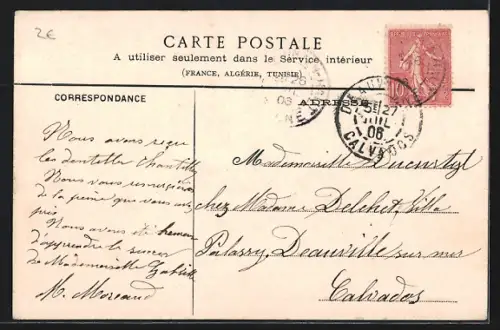 2€
CARTE POSTALE
A utiliser seulement dans le Service intérieur
(FRANCE, ALGÉRIE, TUNISIE)
CORRESPONDANCE
ADRESSE
10
DEAUVILLE
27
JUIL
08
CALVADOS
Nous avons reçu
les dentelles chantilly
Nous vous remercions
de la peine que vous avez
pris
Nous avons été
d'apprendre le
de Mademoiselle
M. Moreaud
Mademoiselle
chez Madame Delchet, Villa
Palassy, Deauville sur mer
Calvados